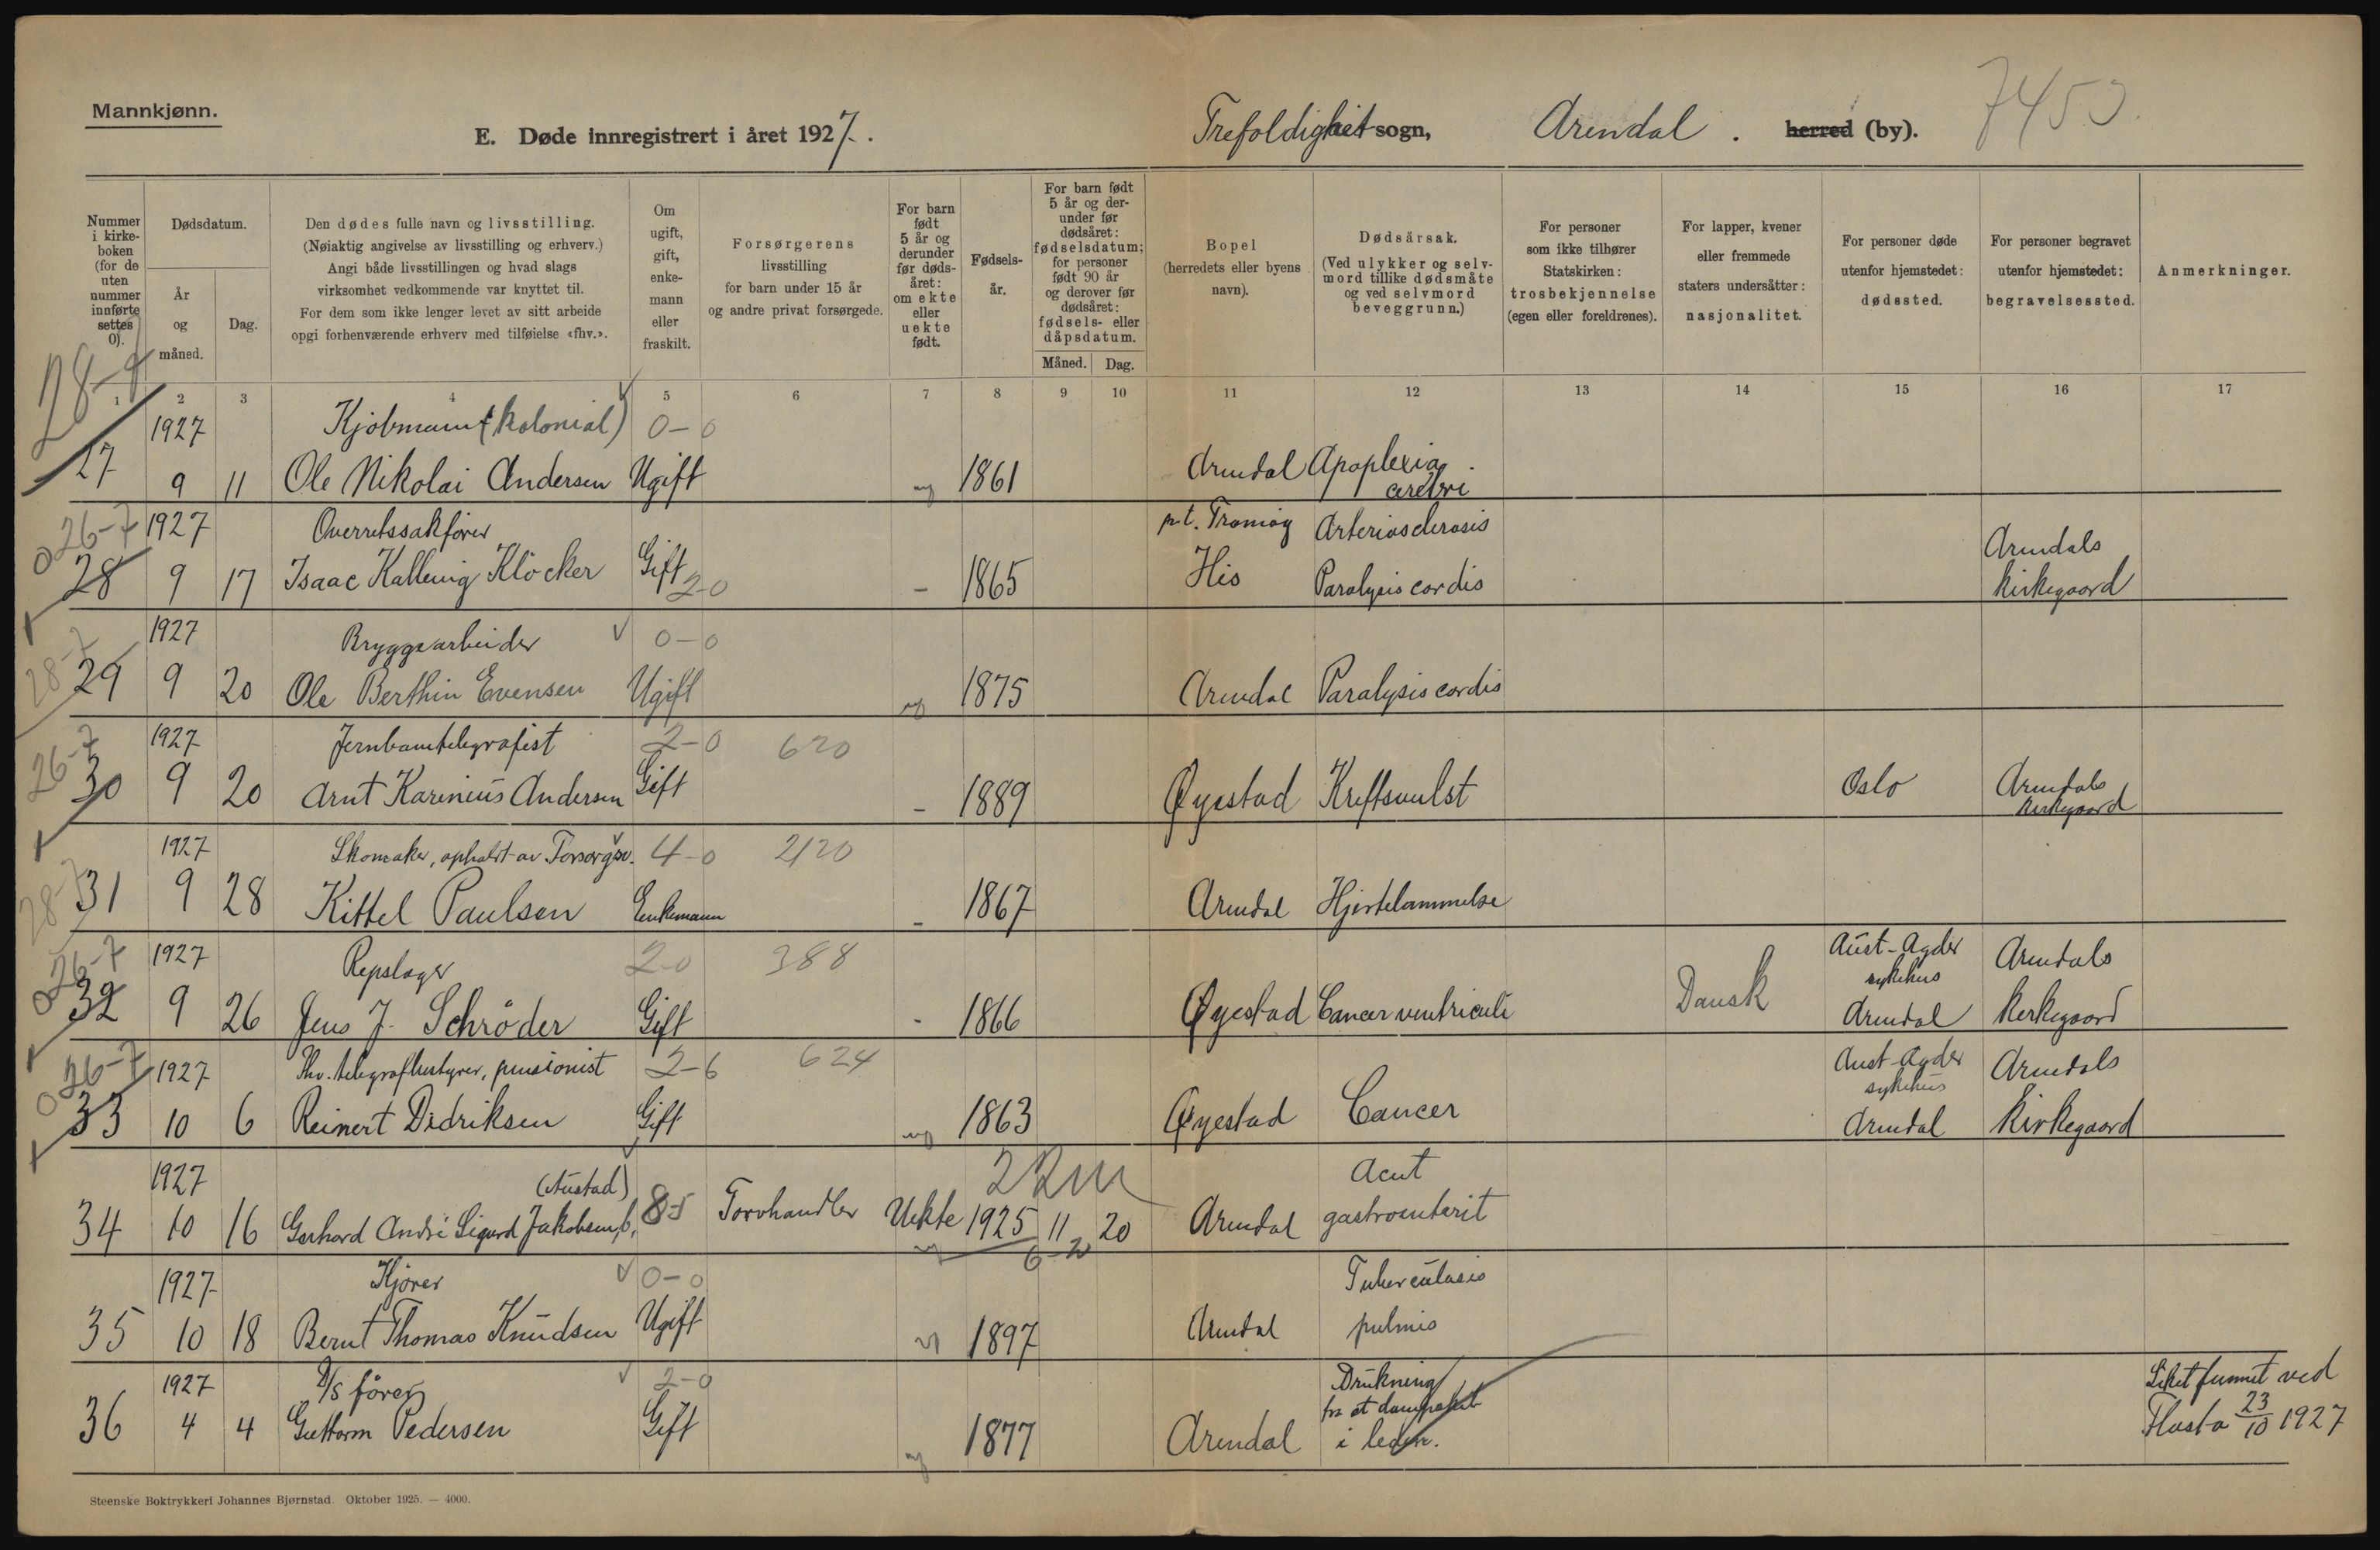 Mannkjønn.
E. Døde innregistrert i året 1927.
Trefoldighet sogn, Arendal. herred (by).
7453
Nummer i kirkeboken (for de uten nummer innførte settes 0).
Dødsdatum.
År og måned.
Dag.
Den dødes fulle navn og livsstilling.
(Nøiaktig angivelse av livsstilling og erhverv.)
Angi både livsstillingen og hvad slags
virksomhet vedkommende var knyttet til.
For dem som ikke lenger levet av sitt arbeide
opgi forhenværende erhverv med tilføielse «fhv.».
Om ugift, gift, enkemann eller fraskilt.
Forsørgerens livsstilling
for barn under 15 år
og andre privat forsørgede.
For barn født 5 år og derunder før dødsåret: om ekte eller uekte født.
Fødselsår.
For barn født 5 år og derunder før dødsåret: fødselsdatum; for personer født 90 år og derover før dødsåret: fødsels- eller dåpsdatum.
Måned. Dag.
Bopel
(herredets eller byens navn).
Dødsårsak.
(Ved ulykker og selvmord tillike dødsmåte og ved selvmord beveggrunn.)
For personer som ikke tilhører Statskirken: trosbekjennelse (egen eller foreldrenes).
For lapper, kvener eller fremmede staters undersåtter: nasjonalitet.
For personer døde utenfor hjemstedet: dødssted.
For personer begravet utenfor hjemstedet: begravelsessted.
Anmerkninger.
1 2 3 4 5 6 7 8 9 10 11 12 13 14 15 16 17
1927 Kjøbmann (kolonial) 0-0
27 9 11 Ole Nikolai Andersen Ugift 1861 Arendal Apoplexia
cerebri
26-7 1927 Overretssakfører p.t. Tromøy Arteriosclerosis Arendals
28 9 17 Isaac Kallevig Klöcker Gift 2-0 - 1865 His Paralysis cordis kirkegaard
28-7 1927 Bryggearbeider 0-0
29 9 20 Ole Berthin Evensen Ugift 1875 Arendal Paralysis cordis
26-7 1927 Jernbanetelegrafist 2-0 620
30 9 20 Arnt Karinius Andersen Gift - 1889 Øyestad Kreftsvulst Oslo Arendals
kirkegaard
28-7 1927 Skomaker, opholdt av Forsorgsv. 4-0 2120
31 9 28 Kittel Paulsen Enkemann - 1867 Arendal Hjertelammelse
26-7 1927 Repslager 2-0 388 Aust-Agder Arendals
sykehus
32 9 26 Jens J. Schrøder Gift - 1866 Øyestad Cancer ventriculi Dansk Arendal kirkegaard
26-7 1927 Fhv. telegrafbestyrer, pensionist 2-6 624 Aust-Agder Arendals
sykehus
33 10 6 Reinert Didriksen Gift 1863 Øyestad Cancer Arendal kirkegaard
1927 (Austad) Acut
34 10 16 Gerhard André Sigurd Jakobsen, 8-5 Torvhandler Uekte 1925 11 20 Arendal gastroenterit
1927 Kjører 0-0 Tuberculosis
35 10 18 Bernt Thomas Knudsen Ugift 1897 Arendal pulmis
1927 D/S fører 2-0 Drukning Liket funnet ved
fra et
36 4 4 Guttorm Pedersen Gift 1877 Arendal i leden. Flosta 23/10 1927
Steenske Boktrykkeri Johannes Bjørnstad. Oktober 1925. — 4000.